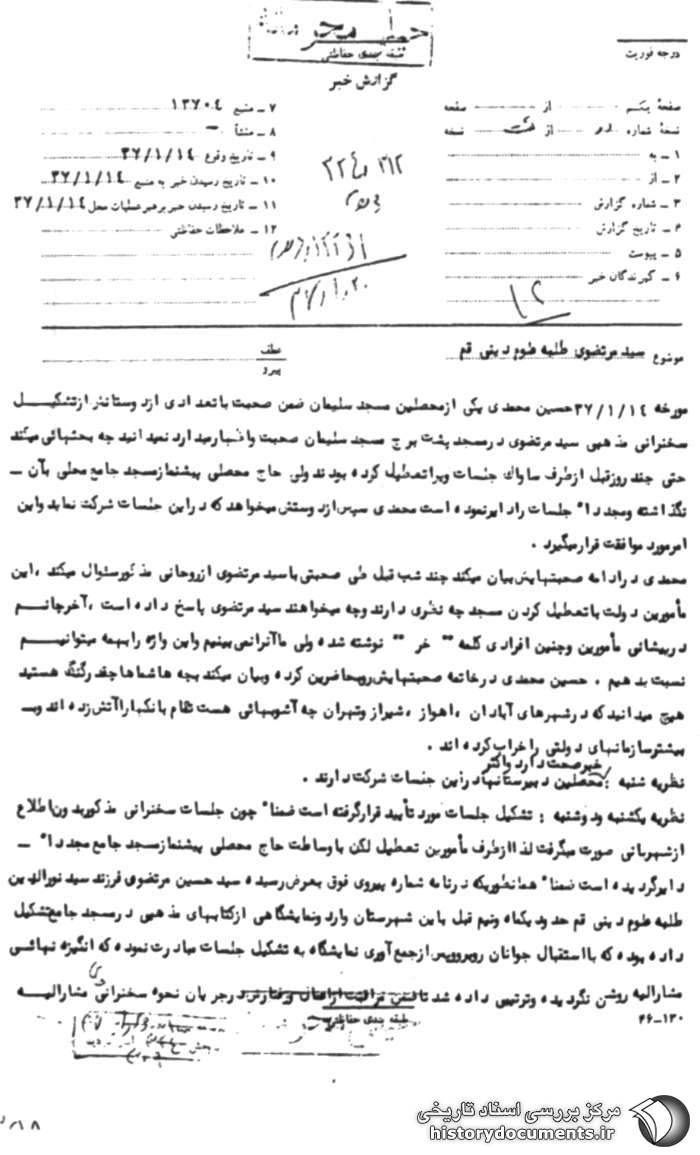 خیلی محرمانه
طبقه بندی حفاظتی
گزارش خبر
درجه فوریت
صفحهٔ یکم از صفحه
نسخهٔ شماره از نسخه
۱ ــ به
۲ ــ از
۳ ــ شماره گزارش
۴ ــ تاریخ گزارش
۵ ــ پیوست
۶ ــ گیرندگان خبر
۷ ــ منبع ۱۳۷۰۴
۸ ــ منشأ ــ
۹ ــ تاریخ وقوع ۳۷/۱/۱۴
۱۰ ــ تاریخ رسیدن خبر به منبع ۳۷/۱/۱۴
۱۱ ــ تاریخ رسیدن خبر برهبر عملیات محل ۳۷/۱/۱۴
۱۲ ــ ملاحظات حفاظتی
۳۱۲
موضوع سید مرتضوی طلبه علوم دینی قم
عطف
پیرو
مورخه ۳۷/۱/۱۴ حسین محمدی یکی از محصلین مسجد سلیمان ضمن صحبت با تعدادی از دوستانش از تشکیل
سخنرانی مذهبی سید مرتضوی در مسجد پشت برج مسجد سلیمان صحبت و اظهار میدارد نمیدانید چه بحثهائی میکند
حتی چند روز قبل از طرف ساواك جلسات ویرا تعطیل کرده بودند ولی حاج محصلی پیشنماز مسجد جامع محلی بآن ــ
نگذاشته و مجدداً جلسات را دایر نموده است محمدی سپس از دوستش میخواهد که در این جلسات شرکت نماید و این
امر مورد موافقت قرار میگیرد .
محمدی در ادامه صحبتهایش بیان میکند چند شب قبل طی صحبتی با سید مرتضوی از روحانی مذکور سئوال میکند ، این
مأمورین دولت با تعطیل کردن مسجد چه نظری دارند و چه میخواهند سید مرتضوی پاسخ داده است ، آخر جانم
در پیشانی مأمورین و چنین افرادی کلمه " خر " نوشته شده ولی ما آنرا نمی بینیم و این واژه را بهمه میتوانیم
نسبت بدهیم . حسین محمدی در خاتمه صحبتهایش رو بحاضرین کرده و بیان میکند بچه ها شماها چقدر گنگ هستید
هیچ میدانید که در شهرهای آبادان ، اهواز ، شیراز و تهران چه آشوبهائی هست تمام بانکها را آتش زده اند و ــ
بیشتر سازمانهای دولتی را خراب کرده اند .
نظریه شنبه : خبر صحت دارد و اکثر محصلین دبیرستانها در این جلسات شرکت دارند .
نظریه یکشنبه و دوشنبه : تشکیل جلسات مورد تأیید قرار گرفته است ضمناً چون جلسات سخنرانی مذکور بدون اطلاع
از شهربانی صورت میگرفت لذا از طرف مأمورین تعطیل لکن با وساطت حاج محصلی پیشنماز مسجد جامع مجدداً ــ
دایر گردیده است ضمناً همانطوریکه در نامه شماره پیروی فوق بعرض رسیده سید حسین مرتضوی فرزند سید نورالدین
طلبه علوم دینی قم حدود یکماه و نیم قبل باین شهرستان وارد و نمایشگاهی از کتابهای مذهبی در مسجد جامع تشکیل
داده بوده که با استقبال جوانان روبرو و پس از جمع آوری نمایشگاه به تشکیل جلسات مبادرت نموده که انگیزه نهائی
مشارالیه روشن نگردیده و ترتیبی داده شد تا ضمن مراقبت از اعمال و رفتارش در جریان نحوه سخنرانی مشارالیه
طبقه بندی حفاظتی
۴۶ــ۱۳۰
مرکز بررسی اسناد تاریخی
historydocuments.ir